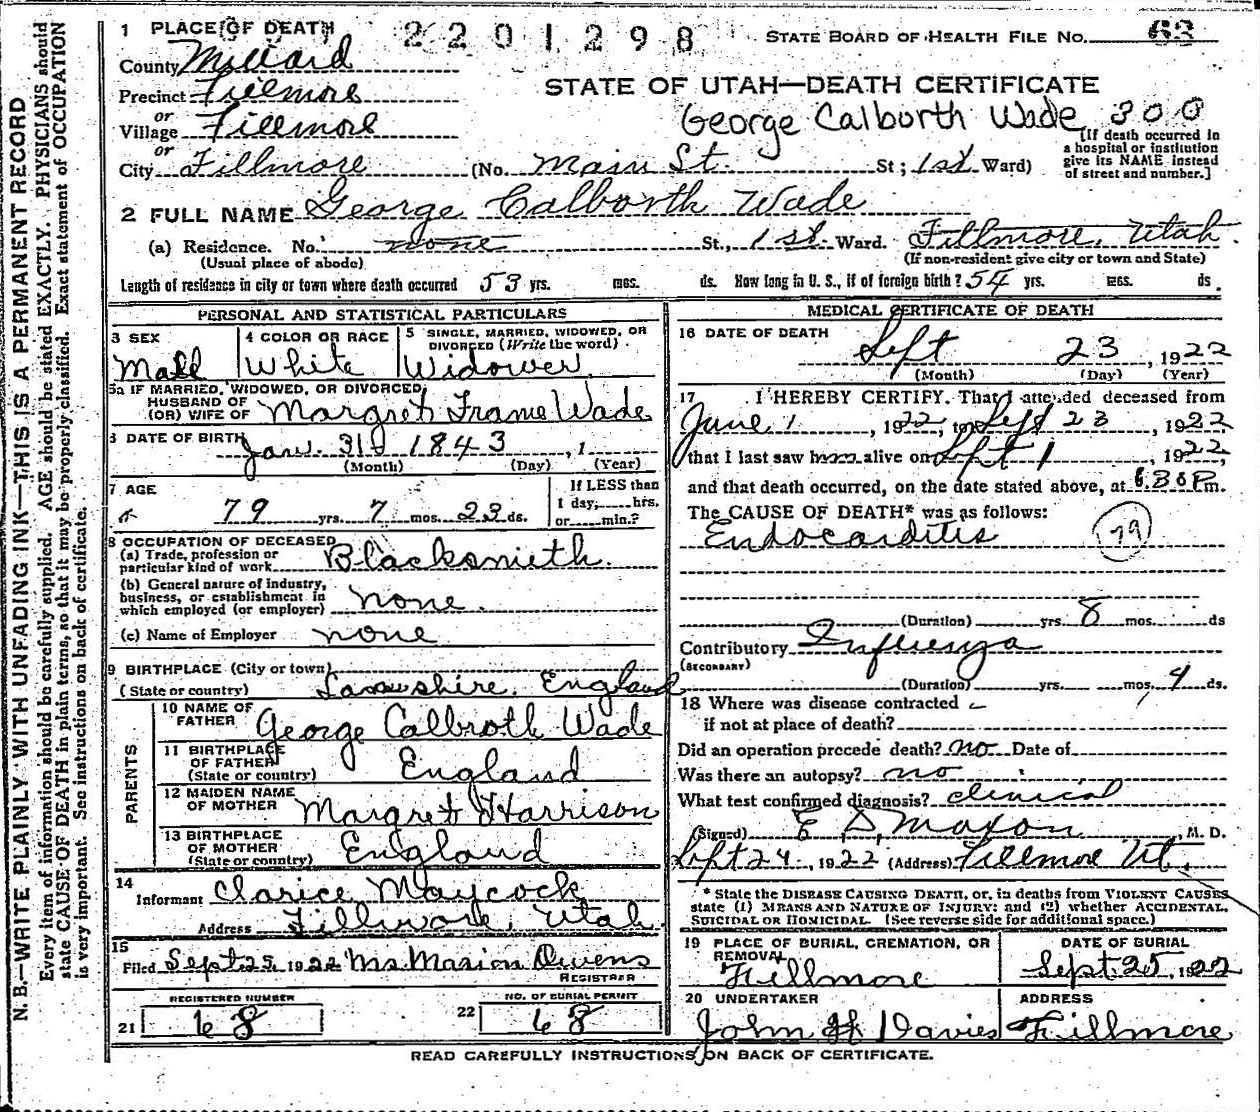 N. B.—WRITE PLAINLY WITH UNFADING INK—THIS IS A PERMANENT RECORD
Every item of information should be carefully supplied. AGE should be stated EXACTLY. PHYSICIANS should
state CAUSE OF DEATH in plain terms, so that it may be properly classified. Exact statement of OCCUPATION
is very important. See instructions on back of certificate.
1 PLACE OF DEATH 2201298 STATE BOARD OF HEALTH FILE No. 63
County Millard
STATE OF UTAH—DEATH CERTIFICATE
Precinct Fillmore
George Calborth Wade 300
or
Village Fillmore
or
City Fillmore (No. Main St. St; 1st Ward)
[If death occurred in
a hospital or institution
give its NAME instead
of street and number.]
2 FULL NAME George Calborth Wade
(a) Residence. No. none St., 1st Ward. Fillmore, Utah.
(Usual place of abode) (If non-resident give city or town and State)
Length of residence in city or town where death occurred 53 yrs. mos. ds. How long in U. S., if of foreign birth? 54 yrs. mos. ds.
PERSONAL AND STATISTICAL PARTICULARS
3 SEX Mall
4 COLOR OR RACE White
5 SINGLE, MARRIED, WIDOWED, OR
DIVORCED (Write the word) Widower
5a IF MARRIED, WIDOWED, OR DIVORCED,
HUSBAND OF
(OR) WIFE OF Margret Frame Wade
6 DATE OF BIRTH Jan. 31 1843, 1
(Month) (Day) (Year)
7 AGE 79 yrs. 7 mos. 23 ds.
If LESS than
1 day, hrs.
or min.?
8 OCCUPATION OF DECEASED
(a) Trade, profession or
particular kind of work Blacksmieth.
(b) General nature of industry,
business, or establishment in
which employed (or employer) none.
(c) Name of Employer none
9 BIRTHPLACE (City or town)
(State or country) England
PARENTS
10 NAME OF
FATHER George Calbroth Wade
11 BIRTHPLACE
OF FATHER
(State or country) England
12 MAIDEN NAME
OF MOTHER Margret Harrison
13 BIRTHPLACE
OF MOTHER
(State or country) England
14
Informant Clarice Maycock
Address Fillmore, Utah
15
Filed Sept 25, 1922 Mrs Marion Owens
REGISTRAR
REGISTERED NUMBER NO. OF BURIAL PERMIT
21 68 22 68
MEDICAL CERTIFICATE OF DEATH
16 DATE OF DEATH
Sept 23, 1922
(Month) (Day) (Year)
17 I HEREBY CERTIFY, That I attended deceased from
June 1, 1922, to Sept 23, 1922
that I last saw him alive on Sept 1, 1922,
and that death occurred, on the date stated above, at 6:30 P.m.
The CAUSE OF DEATH* was as follows:
Endocarditis 79
(Duration) yrs. 8 mos. ds
Contributory Influenza
(SECONDARY)
(Duration) yrs. mos. 4 ds.
18 Where was disease contracted
if not at place of death?
Did an operation precede death? no Date of
Was there an autopsy? no
What test confirmed diagnosis? clinical
(Signed) E. D. Maxon, M. D.
Sept 24, 1922 (Address) Fillmore Ut.
* State the DISEASE CAUSING DEATH, or, in deaths from VIOLENT CAUSES
state (1) MEANS AND NATURE OF INJURY; and (2) whether ACCIDENTAL,
SUICIDAL or HOMICIDAL. (See reverse side for additional space.)
19 PLACE OF BURIAL, CREMATION, OR
REMOVAL Fillmore
DATE OF BURIAL
Sept. 25, 1922
20 UNDERTAKER ADDRESS
John H Davies Fillmore
READ CAREFULLY INSTRUCTIONS ON BACK OF CERTIFICATE.